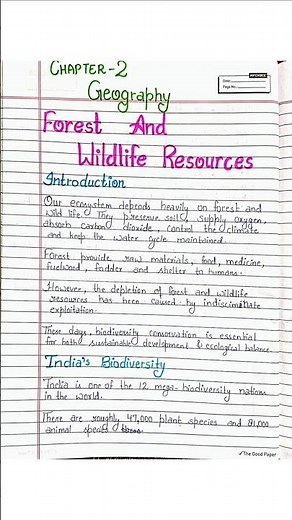 CHAPTER-2
Geography
Date
Page No.
Forest And
Wildlife Resources
Introduction
Our ecosystem depends heavily on forest and
wild life. They preserve soil, supply oxygen,
absorb carbon dioxide, control the climate
and keep the water cycle maintained.
Forest provide raw materials, food, medicine,
fuelwood, fodder and shelter to humans.
However, the depletion of forest and wildlife
resources has been caused by indiscriminate
exploitation.
These days, biodiversity conservation is essential
for both sustainable development & ecological balance.
India's Biodiversity
India is one of the 12 mega-biodiversity nations
in the world.
There are roughly 47,000 plant species and 81,000
animal species
The Good Paper